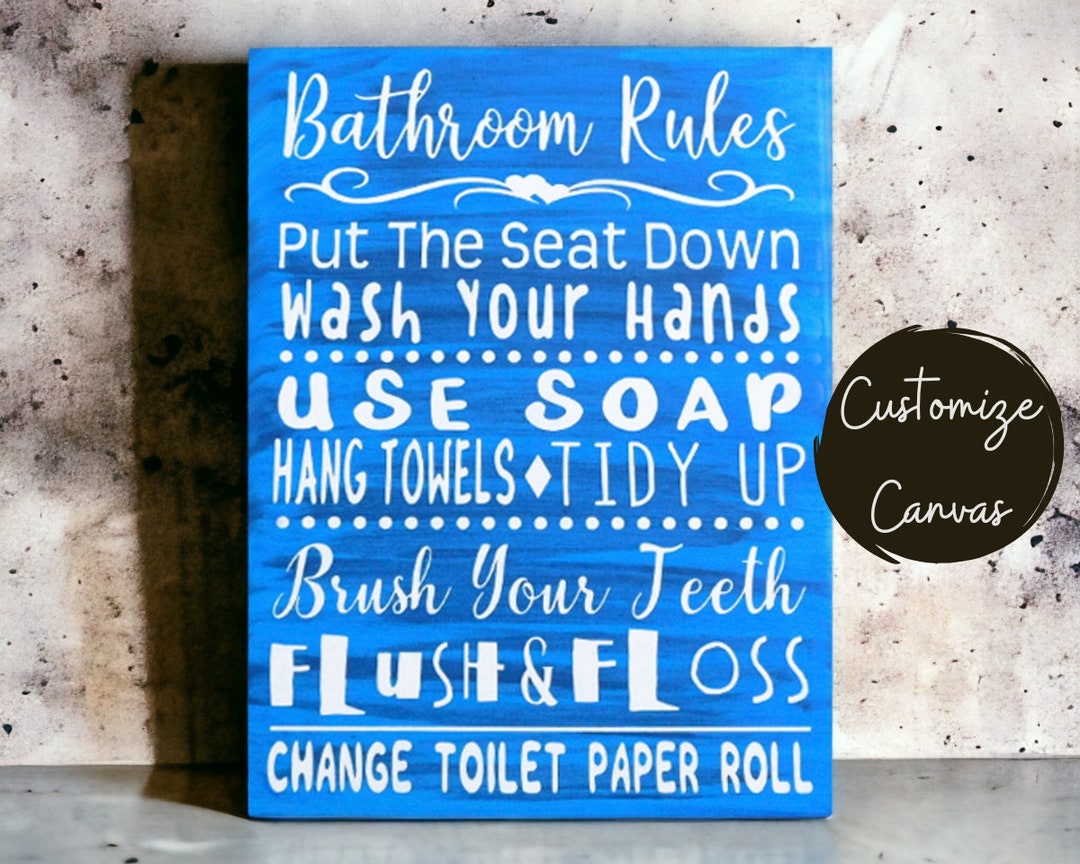 Bathroom Rules
Put The Seat Down
Wash Your Hands
USE SOAP
HANG TOWELS♦TIDY UP
Brush Your Teeth
FLuSH&FLOSS
CHANGE TOILET PAPER ROLL
Customize
Canvas